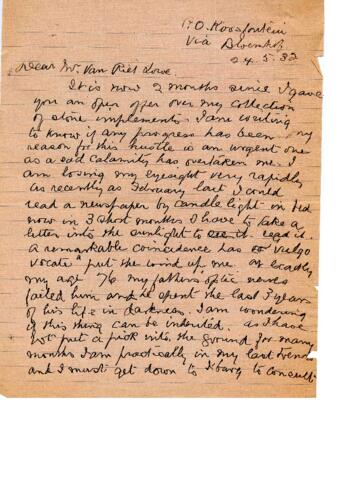 P.O. Koosfontein
Via Bloemhof
24.5.32
Dear Mr. Van Riet Lowe.
It is now 2 months since I gave
you an open offer over my collection
of stone implements. I am writing
to know if any progress has been my
reason for this hustle is an urgent one
as a sad calamity has overtaken me. I
am losing my eyesight very rapidly
As recently as February last I could
read a newspaper by candle light in bed
now in 3 short months I have to take a
letter into the sunlight to see it. read it.
A remarkable coincidence has
"put the wind up" me. At exactly
my age 76 my fathers optic nerves
failed him and he spent the last 3 years
of his life in darkness. I am wondering
if this thing can be inherited. As I have
not put a pick into the ground for many
months I am practically in my last trench
and I must get down to Jbarg to consult